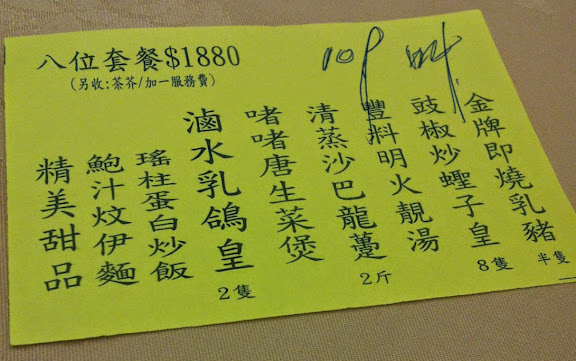 八位套餐$1880
(另收:茶芥/加一服務費)
金牌即燒乳豬 半隻
豉椒炒蟶子皇 8隻
豐料明火靚湯
清蒸沙巴龍躉 2斤
啫啫唐生菜煲
滷水乳鴿皇 2隻
瑤柱蛋白炒飯
鮑汁炆伊麵
精美甜品